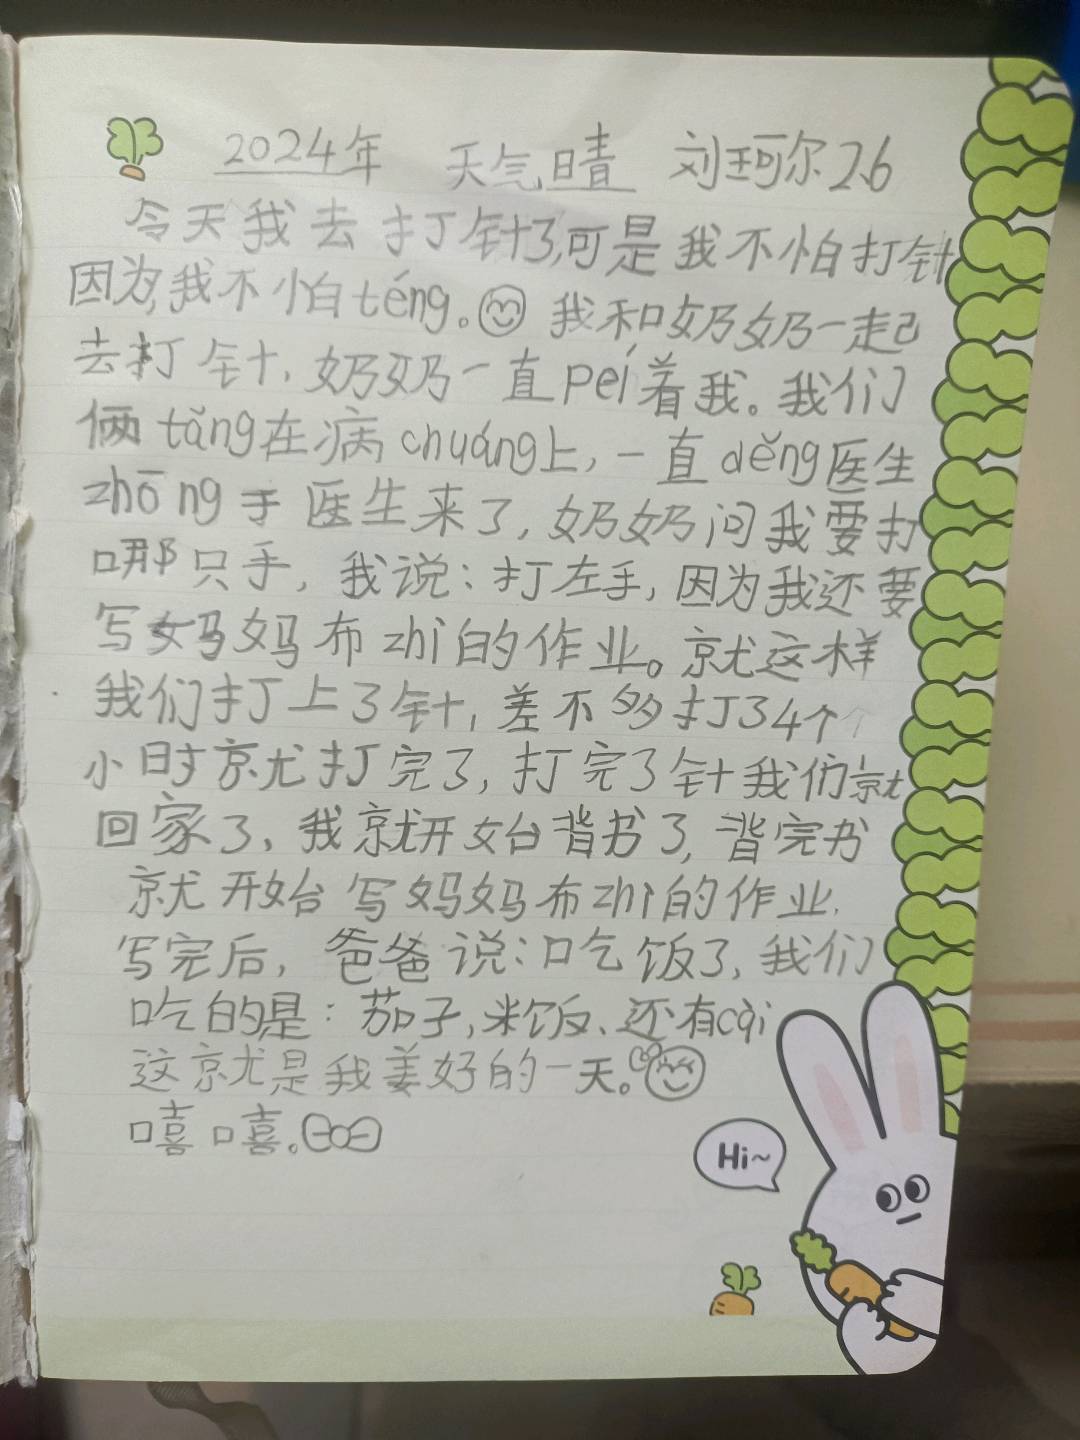 2024年 天气晴 刘珂尔 2.6
今天我去打针了,可是我不怕打针
因为,我不怕téng。我和奶奶一起
去打针,奶奶一直péi着我。我们
俩tǎng在病chuáng上,一直děng医生
zhōng于医生来了,奶奶问我要打
哪只手,我说:打左手,因为我还要
写妈妈布zhì的作业。就这样
我们打上了针,差不多打了4个
小时就打完了,打完了针我们就
回家了,我就开始背书了,背完书
就开始写妈妈布zhì的作业.
写完后,爸爸说:吃饭了,我们
吃的是:茄子,米饭、还有cài
这就是我美好的一天。
嘻嘻。
Hi~